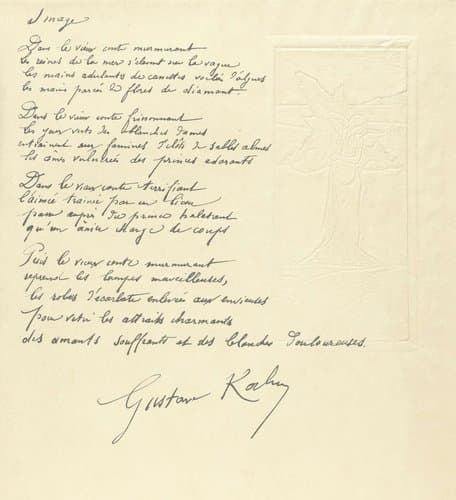 Image
Dans le vieux conte murmurant
les reines de la mer s'élèvent sur la vague
les mains adulantes de voilés d'algues
les mains parées de flores de diamant.
Dans le vieux conte frissonnant
les yeux verts des blanches dames
entraînent aux famines d'îlots de sables almes
les âmes vulnérées des princes adorants
Dans le vieux conte terrifiant
l'aimée traînée par un lien
passe auprès du prince haletant
qu'un ânier charge de coups
Puis le vieux conte murmurant
reprend les lampes merveilleuses,
les robes d'écarlate enlevées aux envieuses
pour vêtir les attraits charmants
des amants souffrants et des blanches douloureuses.
Gustave Kahn